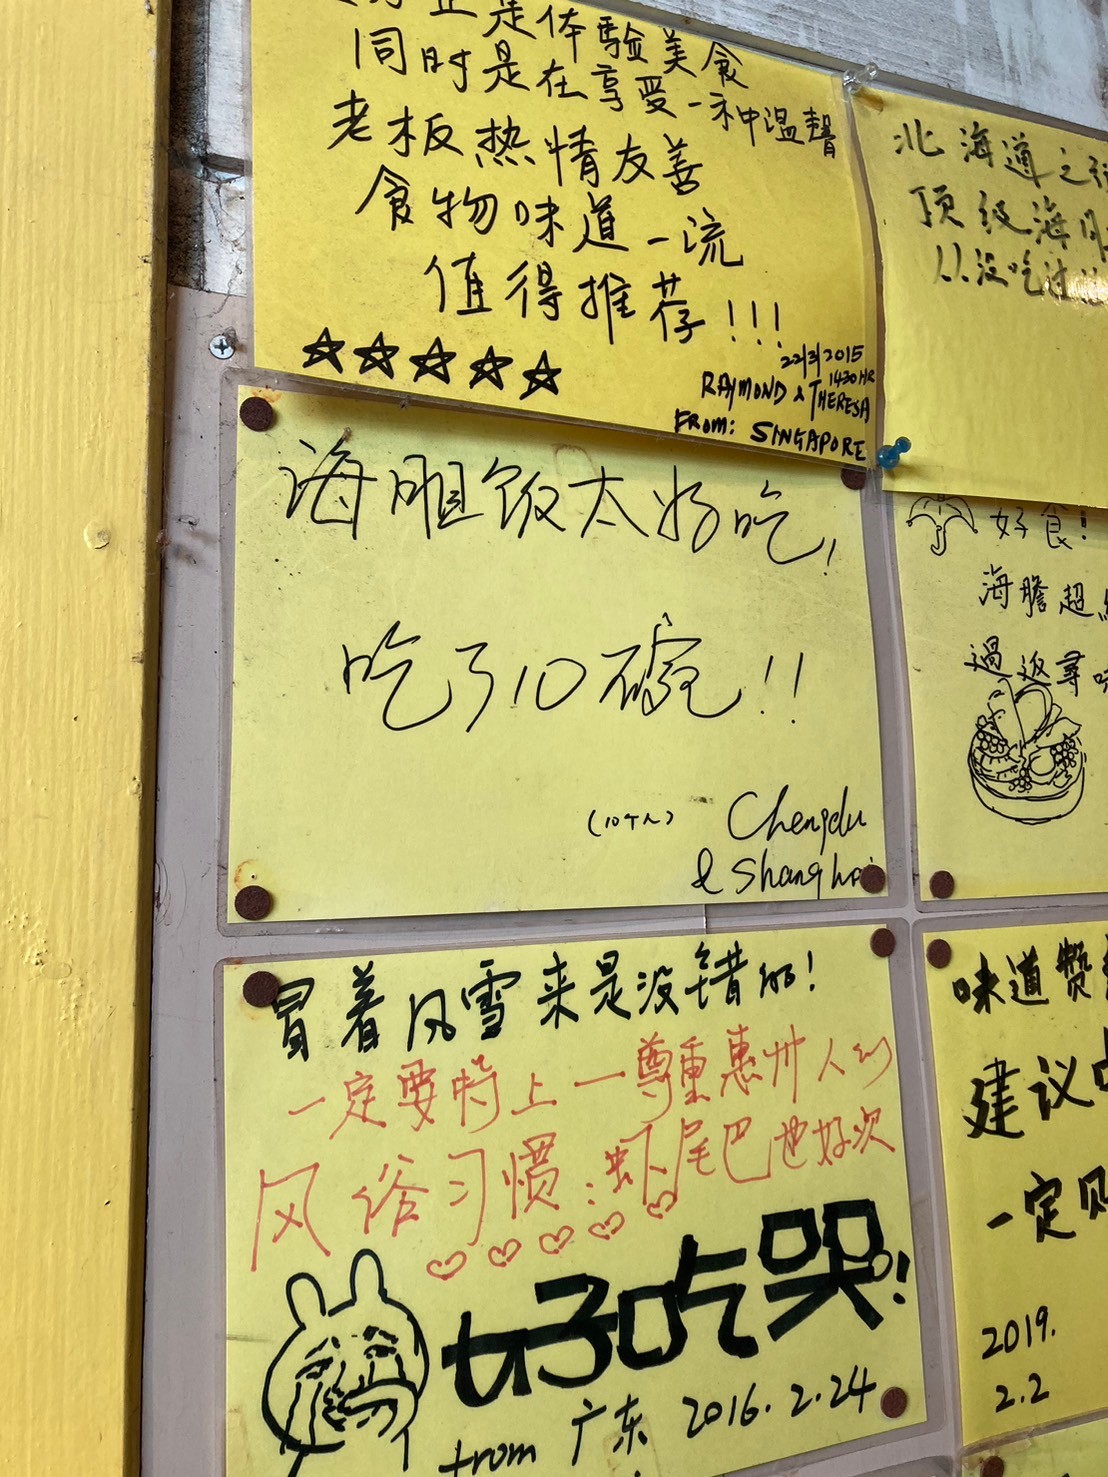 正是体验美食
同时是在享受一种温馨
老板热情友善
食物味道一流
值得推荐!!!
22/3/2015
1430HR
RAYMOND & THERESA
FROM: SINGAPORE
北海道之
顶级海胆
以没吃过
海胆饭太好吃!
吃了10碗!!
(10个人)
Chengdu
& Shanghai
好食!
海膽超
過返尋味
冒着风雪来是没错的!
一定要特上一尊重惠州人的
风俗习惯:虾尾巴也好次
好吃哭!
from 广东 2016.2.24
味道赞
建议
一定
2019.
2.2